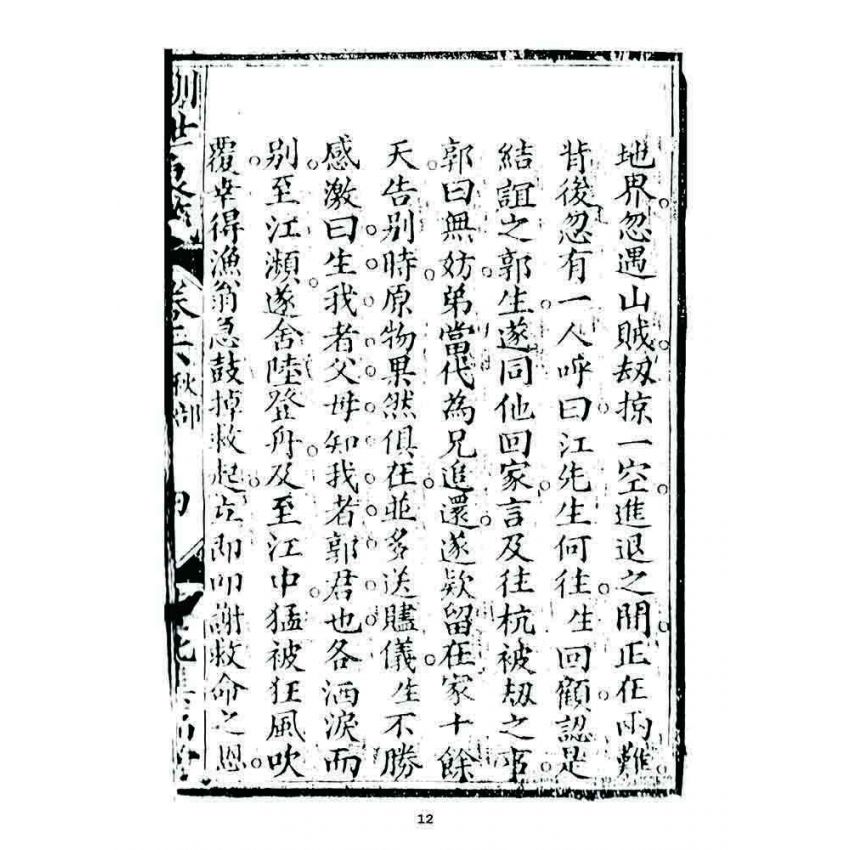 地界忽遇山賊刼掠一空進退之間正在兩難
背後忽有一人呼曰江先生何往生回顧認是
結誼之郭生遂同他回家言及往杭被刼之事
郭曰無妨弟當代為兄追還遂欵留在家十餘
天告别時原物果然俱在並多送贐儀生不勝
感激曰生我者父母知我者郭君也各洒淚而
别至江瀕遂舍陸登舟及至江中猛被狂風吹
覆幸得漁翁急鼓掉救起立即叩謝救命之恩
卷六 秋部
12